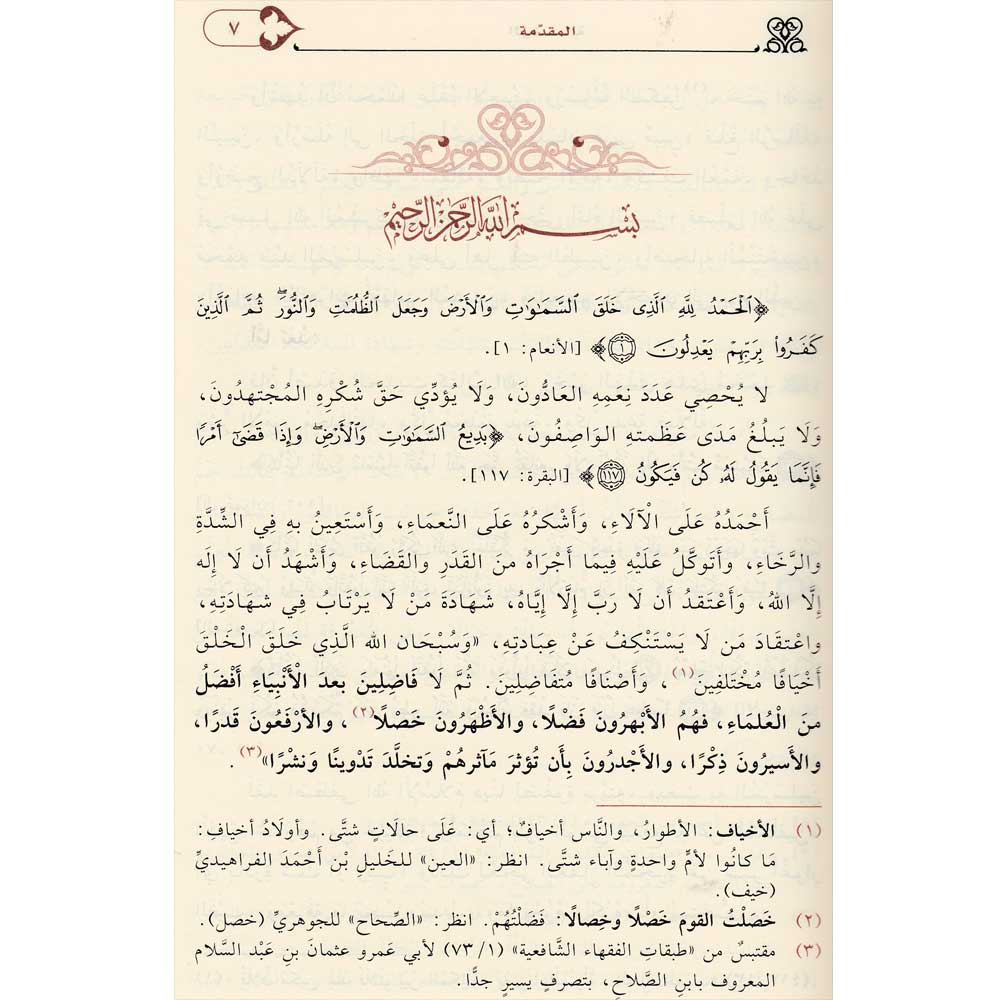 المقدّمة ٧
بسم الله الرحمن الرحيم
﴿ٱلۡحَمۡدُ لِلَّهِ ٱلَّذِي خَلَقَ ٱلسَّمَٰوَٰتِ وَٱلۡأَرۡضَ وَجَعَلَ ٱلظُّلُمَٰتِ وَٱلنُّورَۖ ثُمَّ ٱلَّذِينَ
كَفَرُواْ بِرَبِّهِمۡ يَعۡدِلُونَ ١﴾ [الأنعام: ١].
لا يُحْصِي عَدَدَ نَعَمِهِ العَادُّونَ، وَلَا يُؤَدِّي حَقَّ شُكْرِهِ المُجْتهِدُونَ،
وَلَا يَبلُغُ مَدَى عَظَمتهِ الوَاصِفُونَ، ﴿بَدِيعُ ٱلسَّمَٰوَٰتِ وَٱلۡأَرۡضِۖ وَإِذَا قَضَىٰٓ أَمۡرٗا
فَإِنَّمَا يَقُولُ لَهُۥ كُن فَيَكُونُ ١١٧﴾ [البقرة: ١١٧].
أَحْمَدُهُ عَلَى الْآلَاءِ، وَأَشْكرُهُ عَلَى النَّعمَاءِ، وَأَسْتَعِينُ بهِ فِي الشِّدَّةِ
والرَّخَاءِ، وَأَتَوكَّلُ عَلَيْهِ فِيمَا أَجْرَاهُ منَ القَدَرِ وَالقَضَاءِ، وَأَشْهَدُ أَن لَا إِلَه
إِلَّا اللهُ، وَأَعْتَقدُ أَن لَا رَبَّ إِلَّا إِيَّاهُ، شَهَادَةَ مَنْ لَا يَرْتَابُ فِي شهَادَتِهِ،
واعْتقَادَ مَن لَا يَسْتَنْكِفُ عَنْ عِبَادتِهِ، «وَسُبْحَان الله الَّذِي خَلَقَ الْخَلْقَ
أَخْيَافًا مُخْتَلفِينَ(١)، وَأَصْنَافًا مُتفَاضِلِينَ. ثُمَّ لَا فَاضِلِينَ بعدَ الْأَنْبِيَاءِ أَفْضَلُ
منَ الْعُلمَاءِ، فهُمُ الأَبْهرُونَ فَضْلًا، والأَظْهَرُونَ خَصْلًا(٢)، والأرْفَعُونَ قَدرًا،
والأَسيرُونَ ذِكْرًا، والأَجْدرُونَ بِأَن تُؤثرَ مَآثرهُمْ وَتخلَّدَ تَدْوينًا وَنشْرا»(٣).
(١) الأخياف: الأطوارُ، والنَّاس أخيافٌ؛ أي: عَلَى حالَاتٍ شتَّى. وأولَادُ أخيافٍ:
مَا كانُوا لأمٍّ واحدةٍ وآباء شتَّى. انظر: «العين» للخَليلِ بْن أَحْمَدَ الفراهيديِّ
(خيف).
(٢) خَصَلْتُ القومَ خَصْلًا وخِصالًا: فَضَلْتُهُمْ. انظر: «الصِّحاح» للجوهريِّ (خصل).
(٣) مقتبسٌ من «طبقاتِ الفقهاء الشَّافعية» (١/ ٧٣) لأبي عَمرو عثمانَ بن عَبْد السَّلام
المعروف بابنِ الصَّلاحِ، بتصرفٍ يسيرٍ جدًّا.